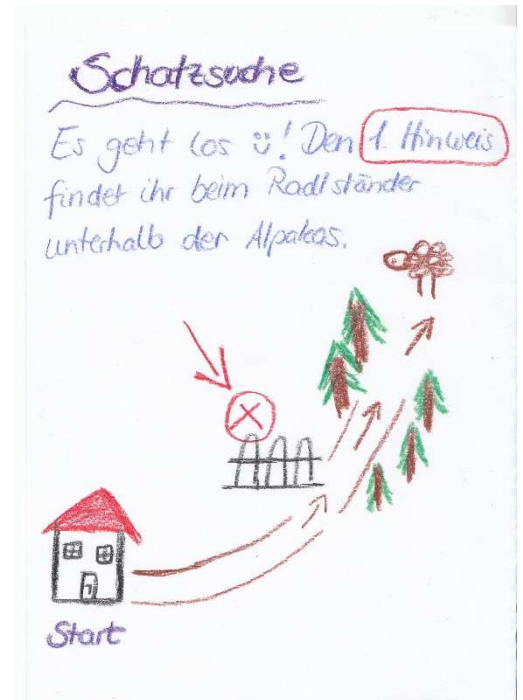 Schatzsuche
Es geht los ! Den 1. Hinweis
findet ihr beim Radlständer
unterhalb der Alpakas.
Start